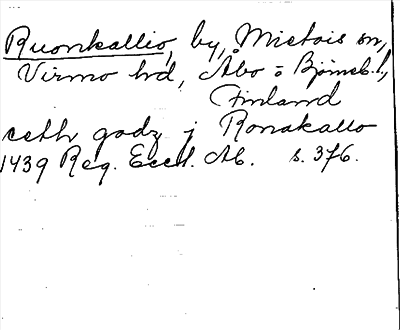 Ruonkallio, by, Mietois sn,
Virmo hd, Åbo o Björneb. l,
Finland
ceth godz j Ronakallo
1439 Reg. Eccl. Ab. s. 376.